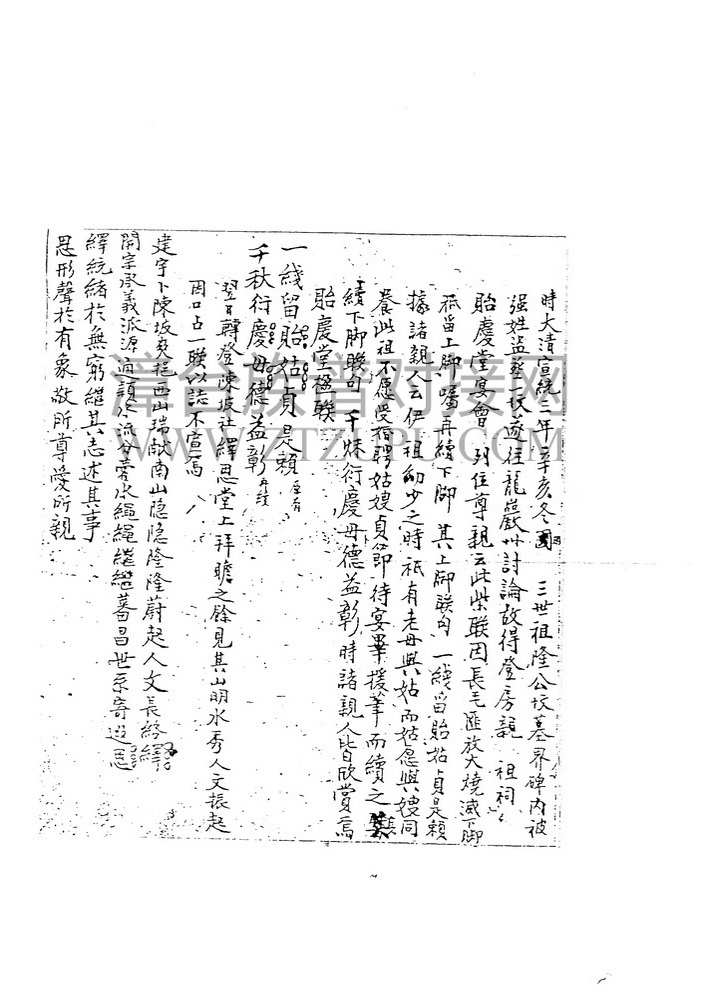 時大清宣統三年辛亥冬因 三世祖隆公坟墓界碑內被
强姓盜塟坟 遊往龍巖州討論故得登房親 祖祠
貽慶堂宴會 列位尊親云此柴联因長毛匪放火燒滅下脚
祇留上脚囑再續下脚 其上脚联句 一綫留貽姑貞是賴
據諸親人云伊祖幼少之時祇有老母與姑而姑愿與嫂同
養此祖不愿受 聘姑嫂貞節待宴畢援筆而續之
續下脚联句 千秌衍慶母德益彰時諸親人皆欣賞焉
貽慶堂楹联
一綫留貽姑貞是賴 原有
千秋衍慶母德益彰
翌日轉登陳坡社繹思堂上拜瞻之餘見其山明水秀人文振起
因口占一联以誌不宣焉
建宇卜陳坡 西山瑞献南山隐隐隆隆蔚起人文長絡繹
開宗承義派源 水繩繩繼繼蕃昌世系寄 思
繹統緒於無窮繼其志述其事
思形聲於有象敬所尊受所親
漳台族谱对接网
WWW.ZTZUPU.COM